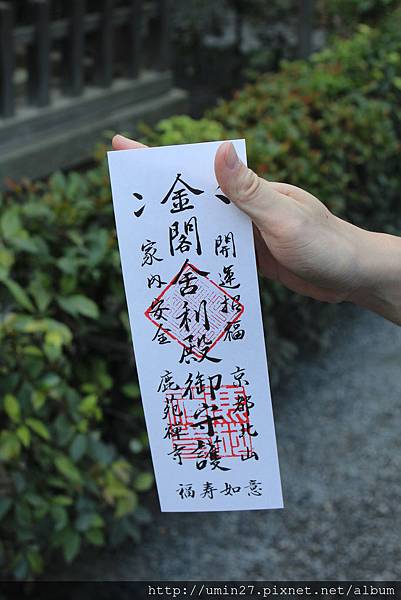 開運招福
京都北山
金閣舎利殿御守護
家内安全
鹿苑禅寺
福寿如意
http://umin27.pixnet.net/album